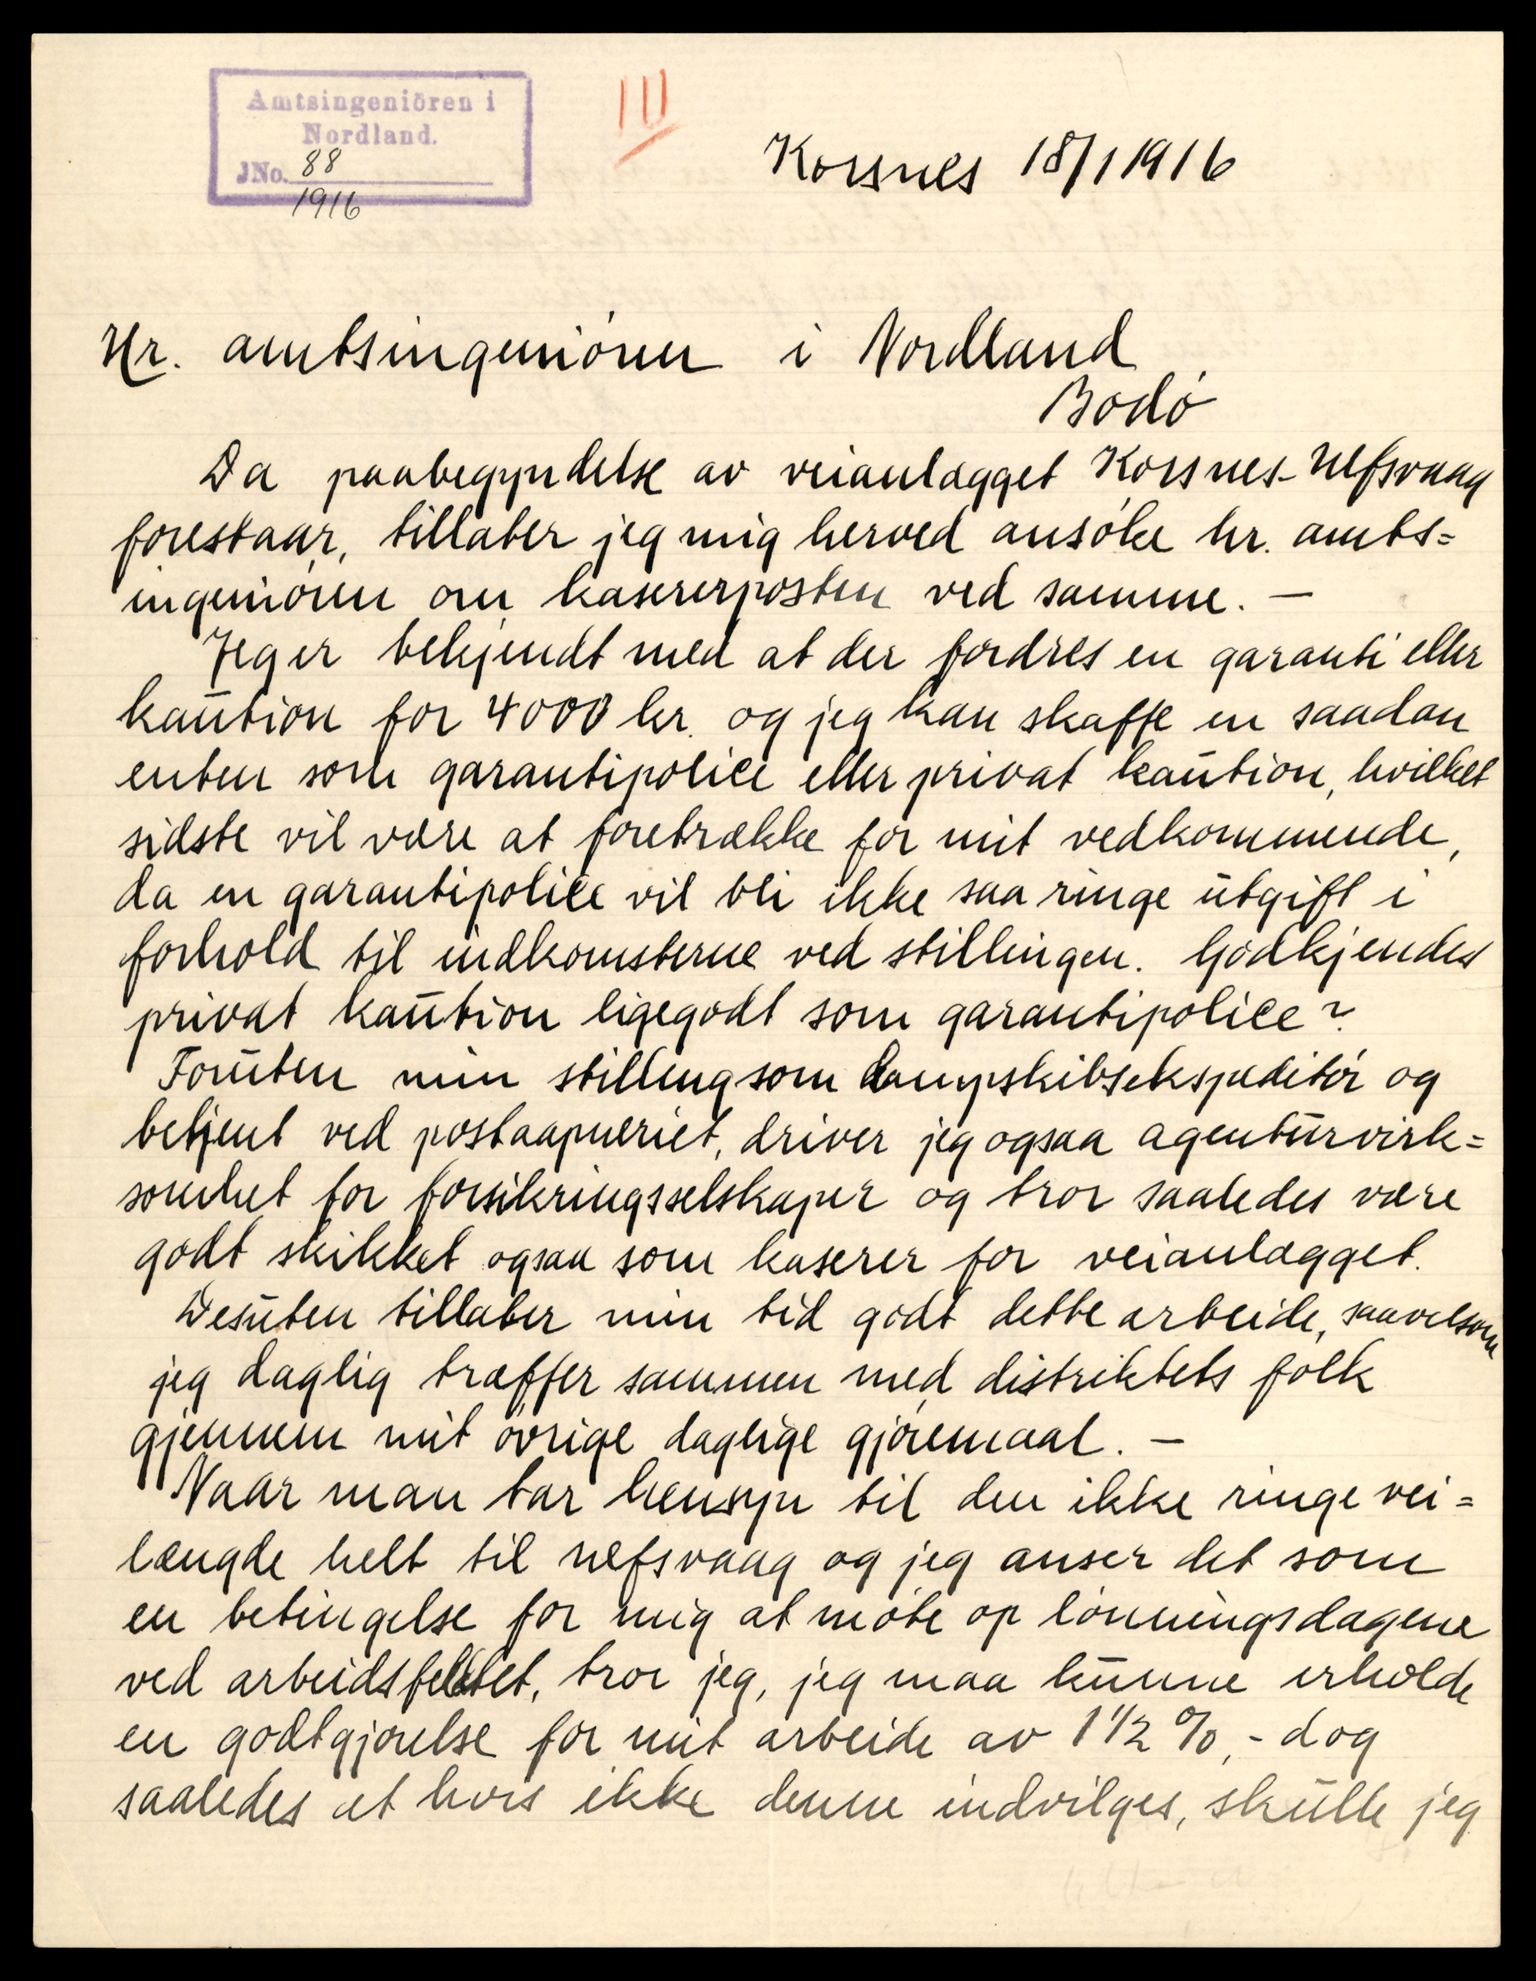 Amtsingeniören i
Nordland.
JNo. 88
1916
III
Korsnes 18/1 1916
Hr. amtsingeniøren i Nordland
Bodø
Da paabegyndelse av veianlægget Korsnes-Nefsvaag
forestaar, tillater jeg mig herved ansøke hr. amts=
ingeniøren om kasererposten ved samme. —
Jeg er bekjendt med at der fordres en garanti eller
kaution for 4000 kr. og jeg kan skaffe en saadan
enten som garantipolice eller privat kaution, hvilket
sidste vil være at foretrække for mit vedkommende,
da en garantipolice vil bli ikke saa ringe utgift i
forhold til indkomsterne ved stillingen. Godkjendes
privat kaution ligegodt som garantipolice?
Foruten min stilling som dampskibsekspeditør og
betjent ved postaapneriet, driver jeg ogsaa agenturvirk=
somhet for forsikringsselskaper og tror saaledes være
godt skikket ogsaa som kaserer for veianlægget.
Desuten tillater min tid godt dette arbeide, saavelsom
jeg daglig træffer sammen med distriktets folk
gjennem mit øvrige daglige gjøremaal. —
Naar man tar hensyn til den ikke ringe vei=
længde helt til Nefsvaag og jeg anser det som
en betingelse for mig at møte op lønningsdagene
ved arbeidsfeltet, tror jeg, jeg maa kunne erholde
en godtgjørelse for mit arbeide av 1 1/2 %,- dog
saaledes at hvis ikke denne indvilges, skulle jeg